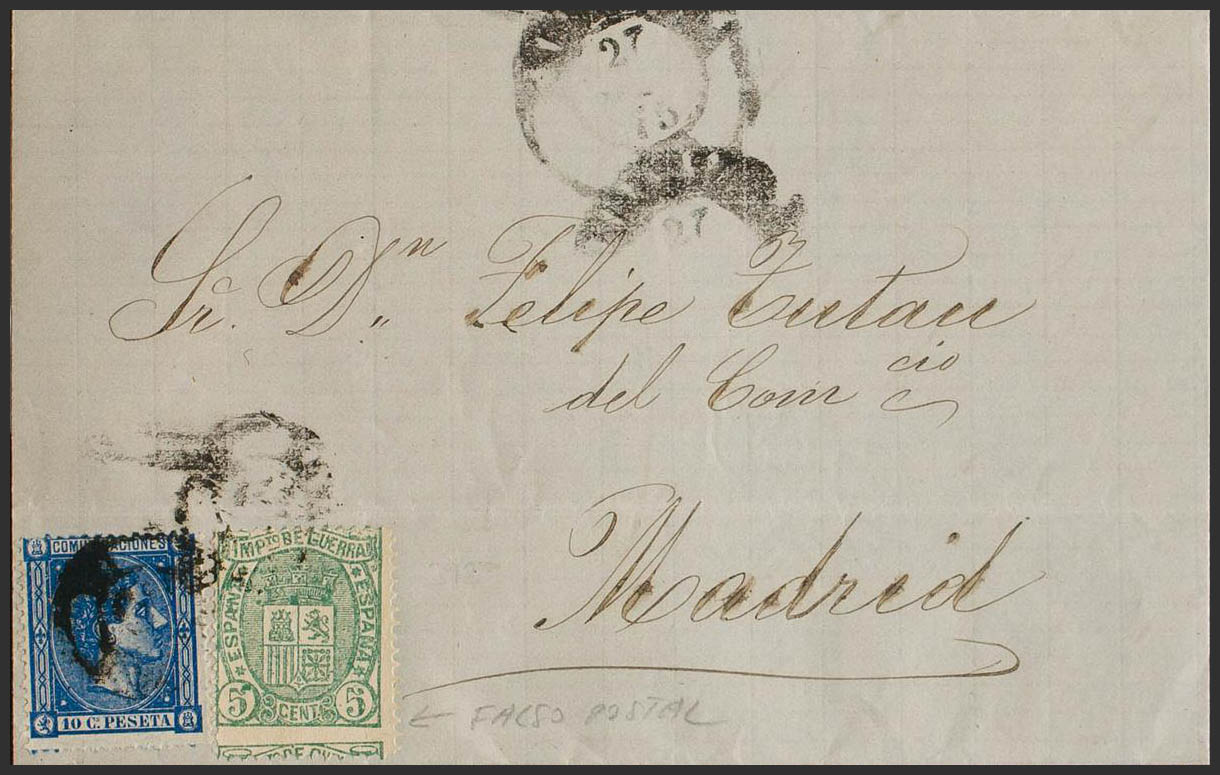 27
75
27
Sr. Dn. Felipe Tutau
del Comcio
Madrid
COMUNICACIONES
10 C. PESETA
IMPTO DE GUERRA
ESPAÑA
ESPAÑA
5 CENT. 5
← FALSO POSTAL